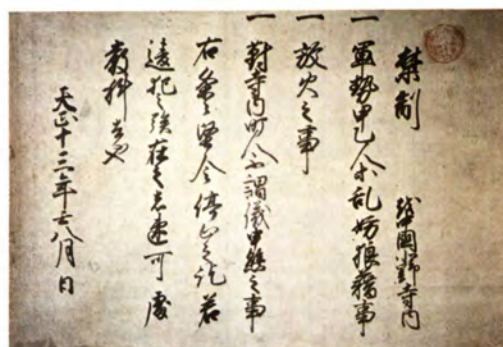 禁制　越中國勝興寺内
一　軍勢甲乙人等乱妨狼藉事
一　放火之事
一　對寺内町人不謂儀申懸之事
右条々堅令停止之訖若
違犯之族在之者速可處
嚴科者也
天正十三年壬八月日